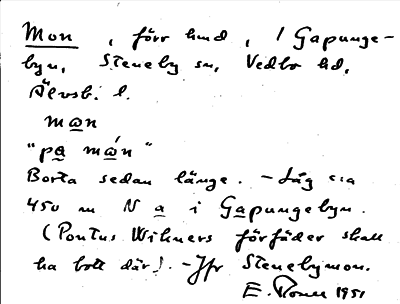 Mon, förr hmd, i Gapunge-
byn, Steneby sn, Vedbo hd,
Älvsb. l.
man
"pa mán"
Borta sedan länge. - Låg c:a
450 m N a i Gapungebyn.
(Pontus Wikners förfäder skall
ha bott där). - Jfr Stenebymon.
E. 1951